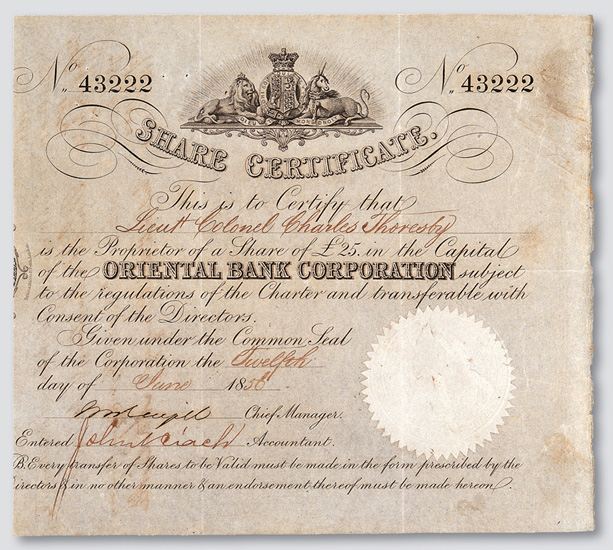 No. 43222
No. 43222
SHARE CERTIFICATE.
This is to Certify that
Lieut Colonel Charles Thoresby
is the Proprietor of a Share of £25. in the Capital
of the ORIENTAL BANK CORPORATION subject
to the regulations of the Charter and transferable with
Consent of the Directors.
Given under the Common Seal
of the Corporation the Twelfth
day of June 1856
Chief Manager.
Entered Accountant.
B. Every transfer of Shares to be Valid must be made in the form prescribed by the
irectors & in no other manner & an endorsement thereof must be made hereon.